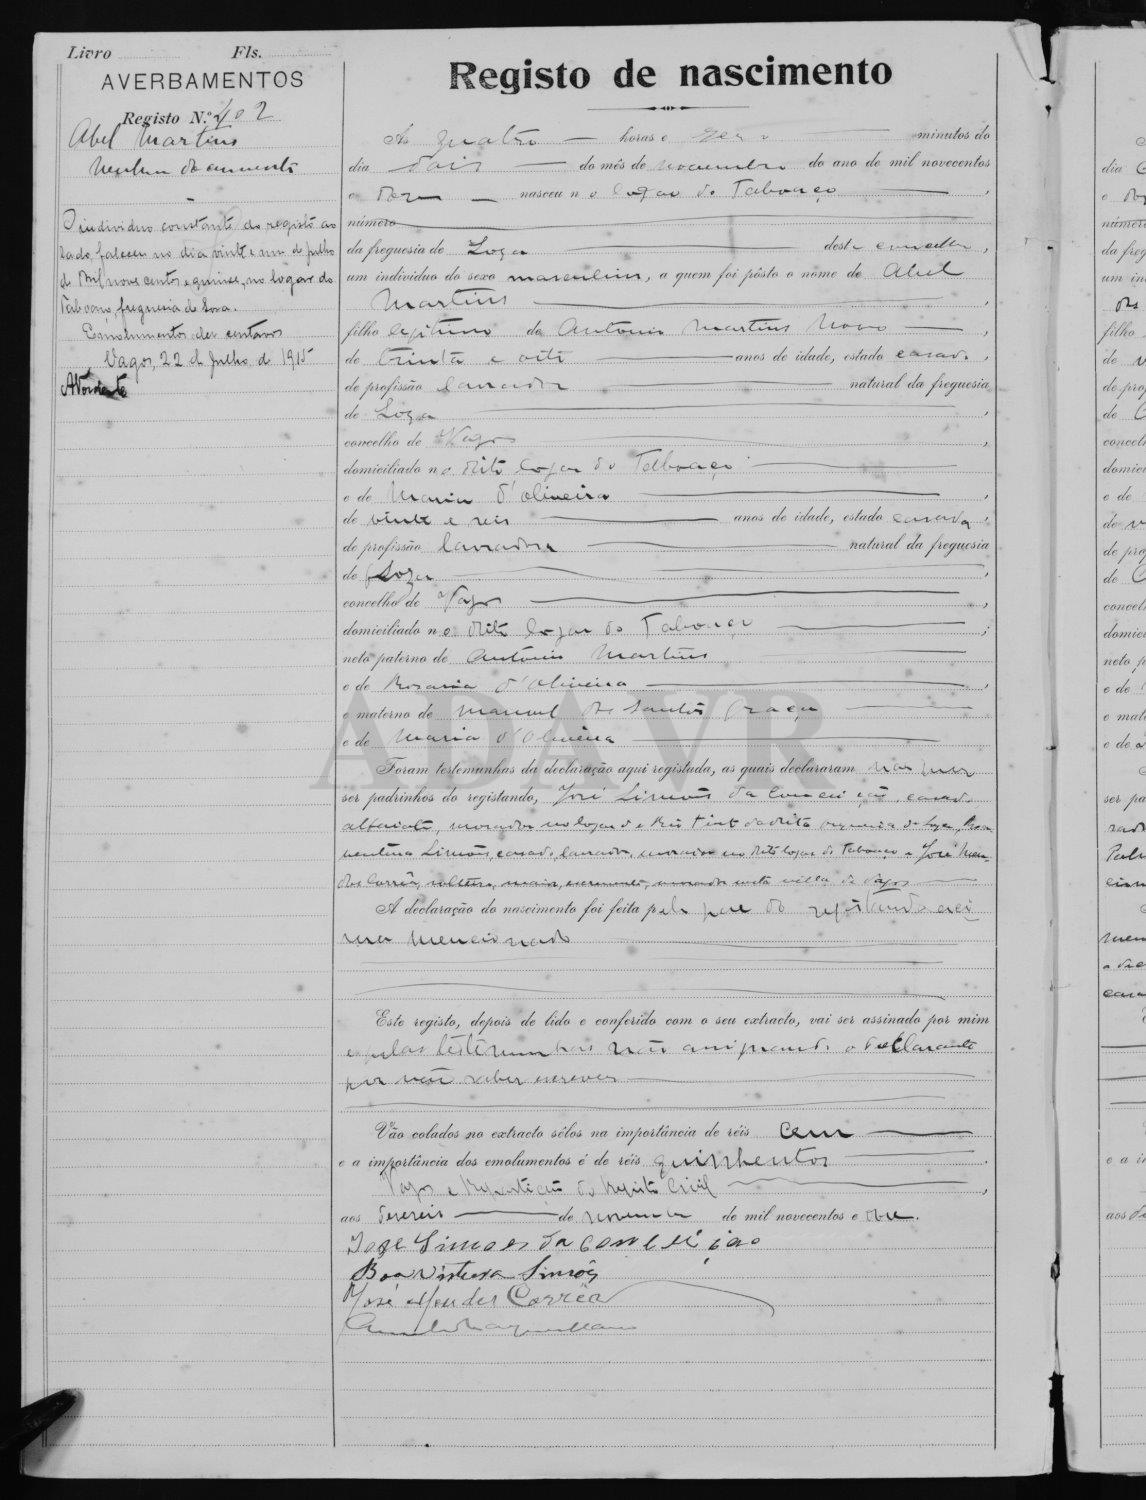 Livro Fls.
AVERBAMENTOS
Registo N.º 402
Abel Martins
Nenhum documento
O individuo constante do registo ao
lado, faleceu no dia vinte e um de julho
de mil nove centos e quinze, no logar do
Tabouço, freguesia de Soza.
Emolumentos dez centavos
Vagos, 22 de Julho de 1915
Registo de nascimento
Ás quatro horas e zero minutos do
dia dois do mês de novembro do ano de mil novecentos
e nasceu no logar do Tabouço,
número
da freguesia de Soza deste concelho,
um individuo do sexo masculino, a quem foi pôsto o nome de Abel
Martins,
filho legitimo de Antonio Martins Novo,
de trinta e oito anos de idade, estado casado,
de profissão lavrador natural da freguesia
de Soza,
concelho de Vagos,
domiciliado no dito logar do Tabouço
e de Maria d'Oliveira,
de vinte e seis anos de idade, estado casada,
de profissão lavradora natural da freguesia
de Soza,
concelho de Vagos,
domiciliado no dito logar do Tabouço;
neto paterno de António Martins
e de Rosaria d'Oliveira,
e materno de Manuel dos Santos Graça
e de Maria d'Oliveira
Foram testemunhas da declaração aqui registada, as quais declararam não querer
ser padrinhos do registando, José Simões da Conceição, casado,
alfaiate, morador no logar de Rio Tinto da dita freguesia de Soza, Boa
ventura Simões, casado, lavrador, morador no dito logar do Tabouço e José Men-
des Corrêa, solteiro, maior, morador nesta villa de Vagos
A declaração do nascimento foi feita pelo pae do registando aci
ma mencionado
Este registo, depois de lido e conferido com o seu extracto, vai ser assinado por mim
e pelas testemunhas não assignando o declarante
por não saber escrever
Vão colados no extracto sêlos na importância de réis cem
e a importância dos emolumentos é de réis quinhentos.
Vagos e Repartição do Registo Civil,
aos dezeseis de novembro de mil novecentos e
José Simões da Conceição
Boaventura Simões
José Mendes Corrêa
ADAVR